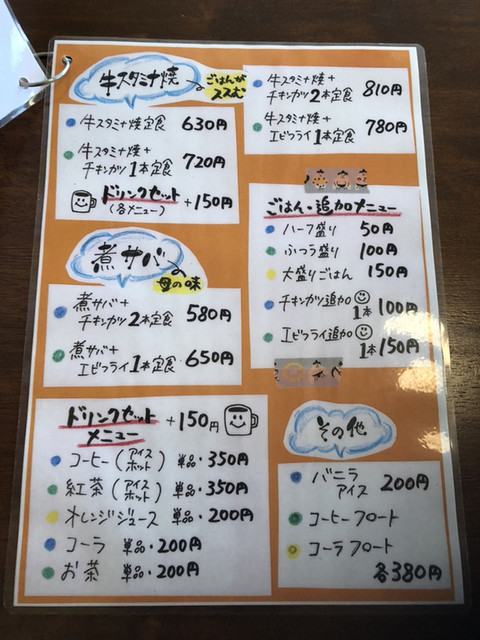 牛スタミナ焼
ごはんが
ススむ
牛スタミナ焼定食 630円
牛スタミナ焼+
チキンカツ1本定食 720円
ドリンクセット
(各メニュー) +150円
牛スタミナ焼+
チキンカツ2本定食 810円
牛スタミナ焼+
エビフライ1本定食 780円
ごはん・追加メニュー
ハーフ盛り 50円
ふつう盛り 100円
大盛りごはん 150円
チキンカツ追加
1本 100円
エビフライ追加
1本 150円
煮サバ
母の味
煮サバ+
チキンカツ2本定食 580円
煮サバ+
エビフライ1本定食 650円
ドリンクセット +150円
メニュー
コーヒー(アイス
ホット) 単品・350円
紅茶(アイス
ホット) 単品・350円
オレンジジュース 単品・200円
コーラ 単品・200円
お茶 単品・200円
その他
バニラ
アイス 200円
コーヒーフロート
コーラフロート
各380円